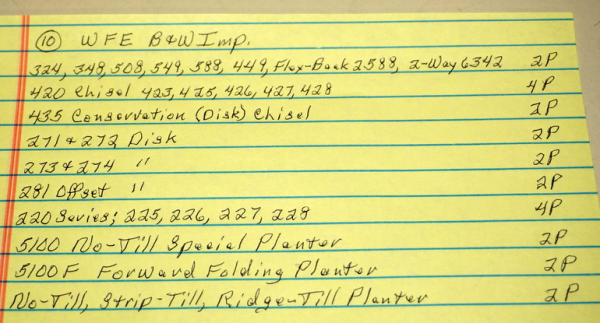 (10) WFE B&W Imp.
324, 348, 508, 549, 588, 449, Flex-Back 2588, 2-Way 6342 2P
420 Chisel 423, 425, 426, 427, 428 4P
435 Conservation (Disk) Chisel 2P
271 & 272 Disk 2P
273 & 274 " 2P
281 Offset " 2P
220 Series; 225, 226, 227, 228 4P
5100 No-Till Special Planter 2P
5100F Forward Folding Planter 2P
No-Till, Strip-Till, Ridge-Till Planter 2P